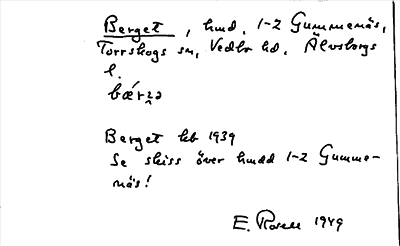 Berget, hmd, 1-2 Gummenäs,
Torrskogs sn, Vedbo hd, Älvsborgs
l.
Berget hb 1939
Se skiss över hmdd 1-2 Gumme-
näs!
E. Rosell 1949